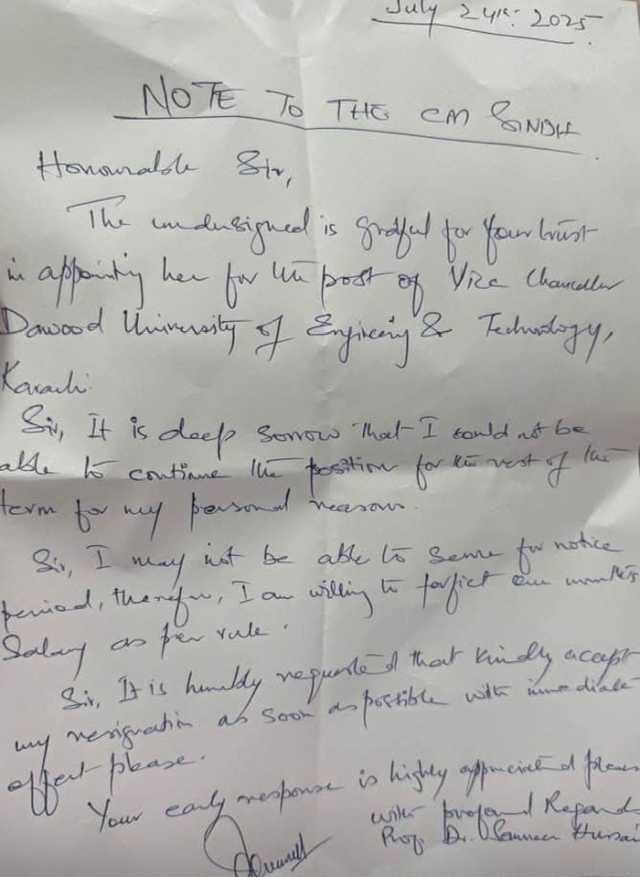 July 24th. 2025.
NOTE TO THE CM SINDH
Honourable Sir,
The undersigned is grateful for your trust
in appointing her for the post of Vice Chancellor
Dawood University of Engineering & Technology,
Karachi.
Sir, It is deep sorrow that I could not be
able to continue the position for the rest of the
term for my personal reasons.
Sir, I may not be able to serve for notice
period, therefore, I am willing to forfiet one month's
Salary as per rule.
Sir, It is humbly requested that kindly accept
my resignation as soon as possible with immediate
effect please.
Your early response is highly appreciated please
with profound Regards
Prof. Dr. Samreen Hussain